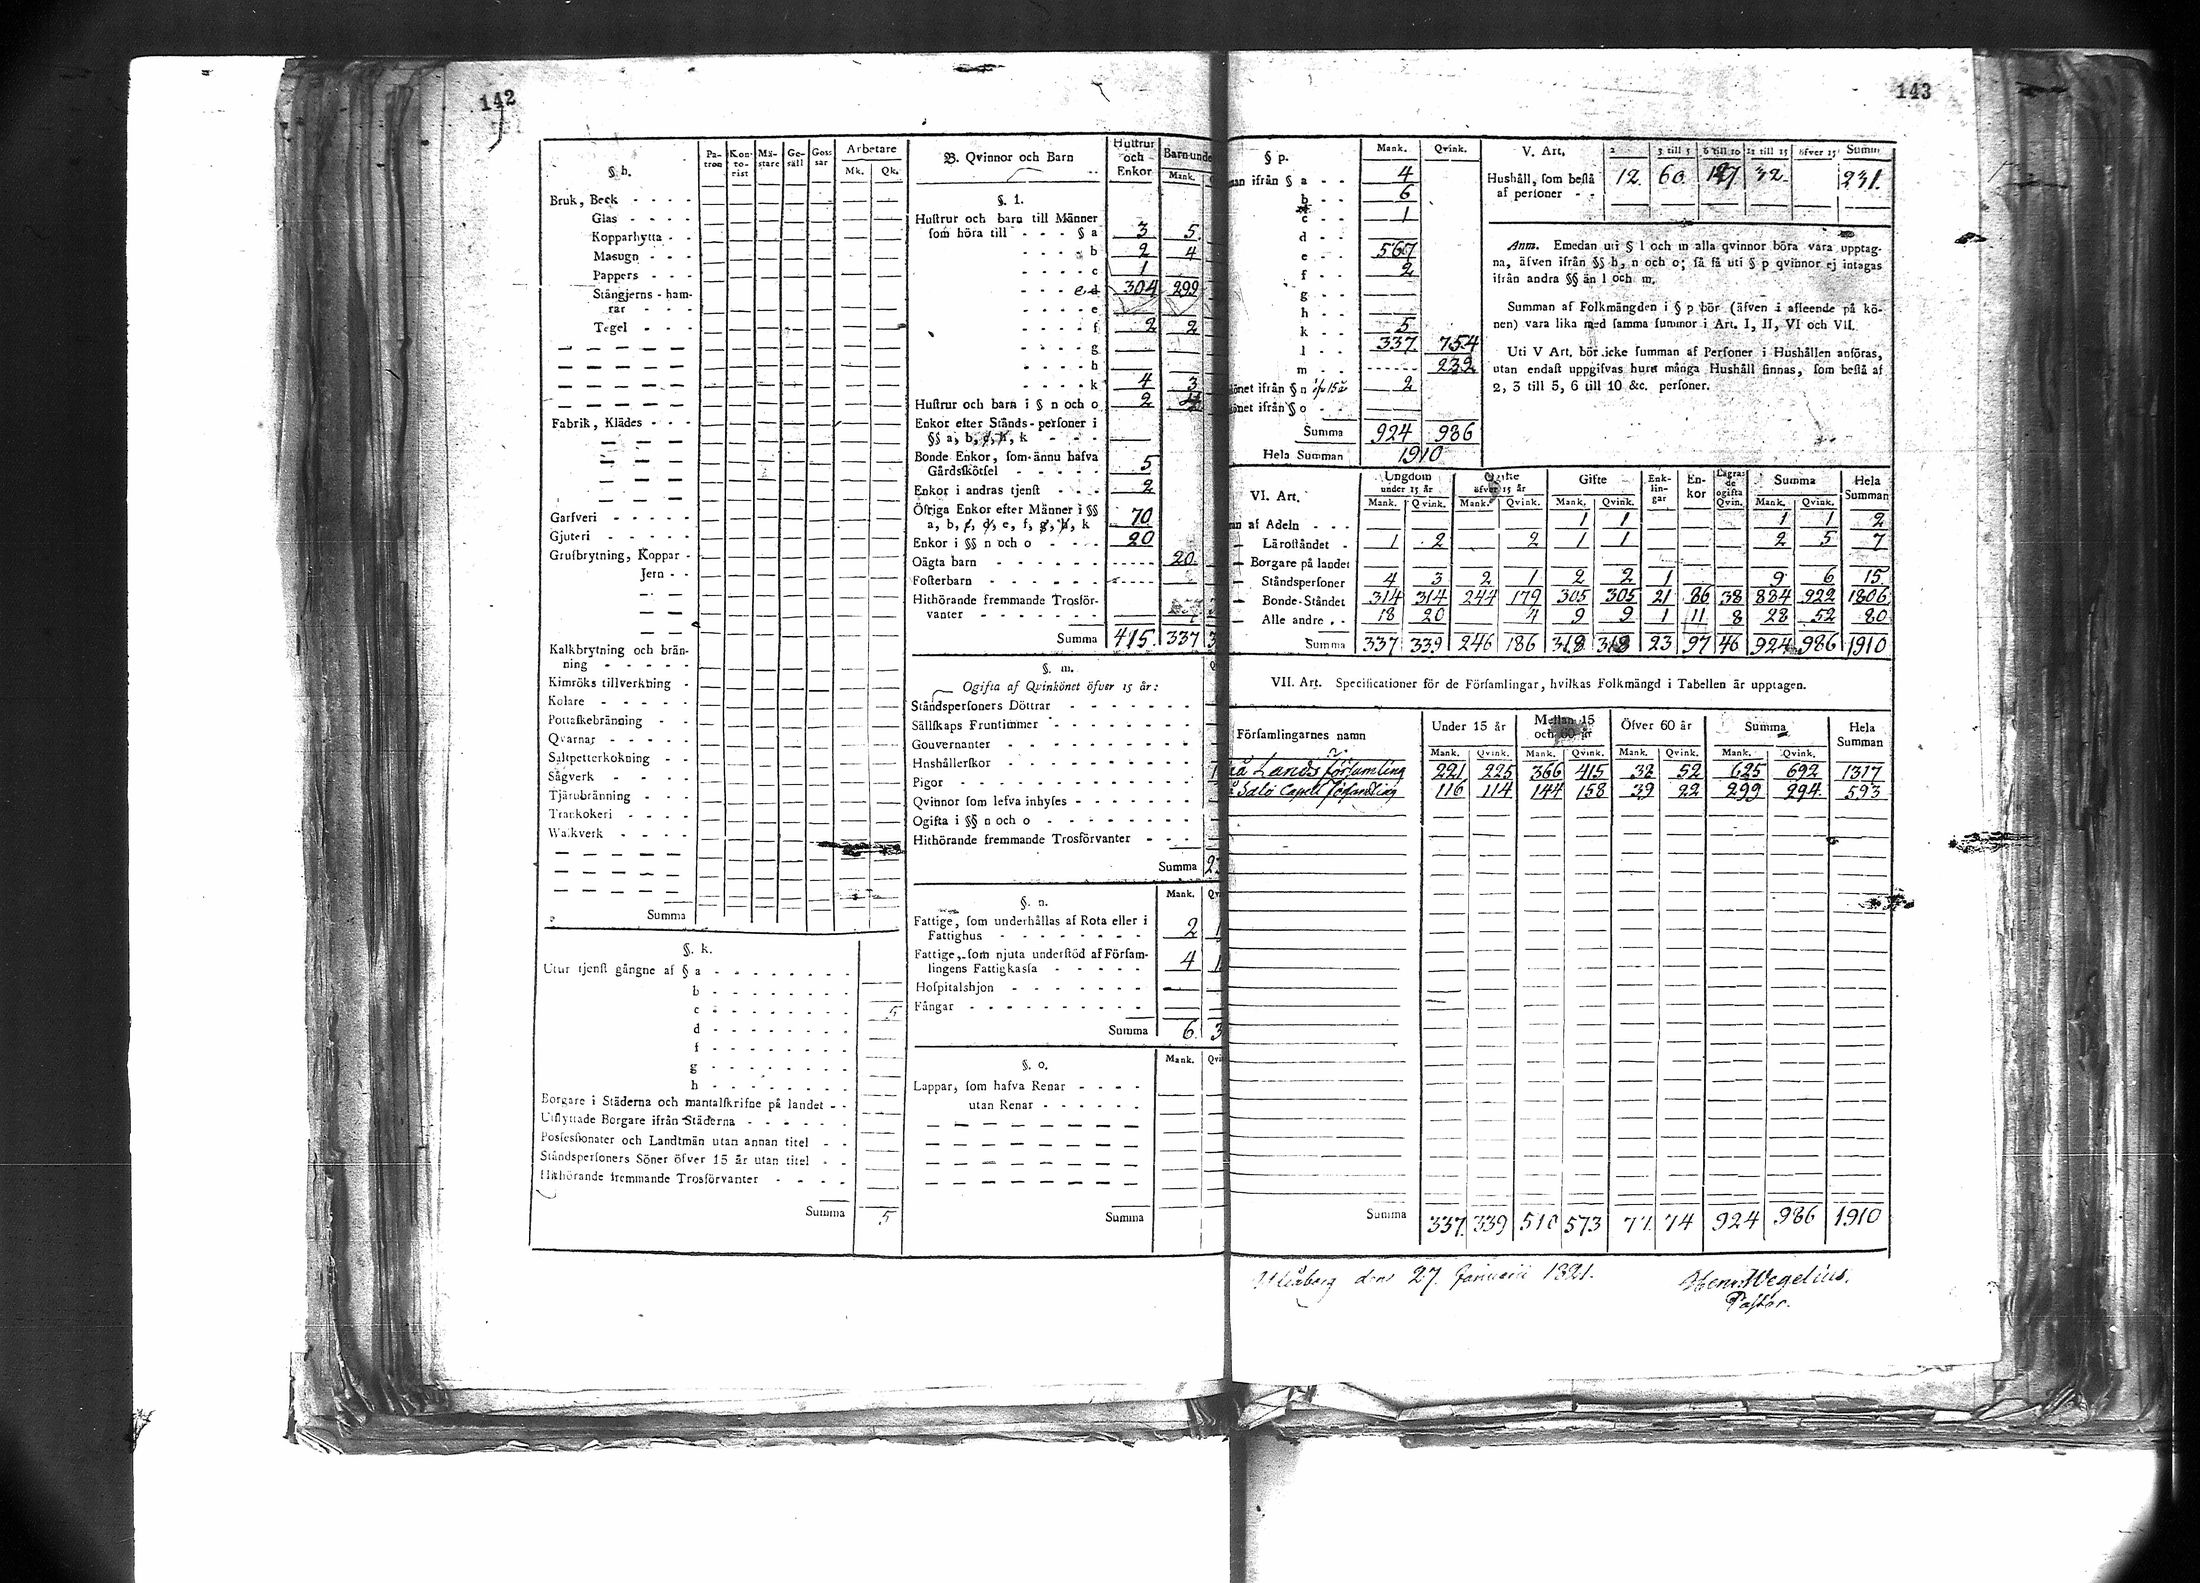 142
§. h.
Pa-tron Kon-to-rist Mä-stare Ge-säll Gos-sar Arbetare
Mk. Qk.
Bruk, Beck
Glas
Kopparhytta
Masugn
Pappers
Stångjerns-ham-
rar
Tegel
Fabrik, Klädes
Garfveri
Gjuteri
Grufbrytning, Koppar
Jern
Kalkbrytning och brän-
ning
Kimröks tillverkning
Kolare
Pottaskebränning
Qvarnar
Saltpetterkokning
Sågverk
Tjärubränning
Trankokeri
Walkverk
Summa
§. k.
Utur tjenst gångne af § a
b
c 5
d
f
g
h
Borgare i Städerna och mantalskrifne på landet
Utflyttade Borgare ifrån Städerna
Possessionater och Landtmän utan annan titel
Ståndspersoners Söner öfver 15 år utan titel
Hithörande fremmande Trosförvanter
Summa 5
B. Qvinnor och Barn
Hustrur och Enkor
Barn unde
Mank.
§. l.
Hustrur och barn till Männer
som höra till § a 3 5
b 2 4
c 1
e d 304 299
e
f 2 2
g
h
k 4 3
Hustrur och barn i § n och o 2 4
Enkor efter Stånds-personer i
§§ a, b, c, h, k
Bonde Enkor, som ännu hafva
Gårdsskötsel 5
Enkor i andras tjenst 2
Öfriga Enkor efter Männer i §§
a, b, c, d, e, f, g, h, k 70
Enkor i §§ n och o 20
Oägta barn 20
Fosterbarn
Hithörande fremmande Trosför-
vanter
Summa 415 337 3
§. m.
Ogifta af Qvinkönet öfver 15 år:
Ståndspersoners Döttrar
Sällskaps Fruntimmer
Gouvernanter
Hushållerskor
Pigor 1
Qvinnor som lefva inhyses
Ogifta i §§ n och o
Hithörande fremmande Trosförvanter
Summa 23
§. n.
Mank. Qv
Fattige, som underhållas af Rota eller i
Fattighus 2 1
Fattige, som njuta understöd af Försam-
lingens Fattigkassa 4 1
Hospitalshjon
Fångar
Summa 6 3
§. o.
Mank. Qvi
Lappar, som hafva Renar
utan Renar
Summa
143
§ p.
Mank. Qvink.
man ifrån § a 4
b 6
c 1
d
e 567
f 2
g
h
k 5
l 337 754
m 232
könet ifrån § n öfv 15 år 2
könet ifrån § o
Summa 924 986
Hela Summan 1910
V. Art. 2 3 till 5 6 till 10 11 till 15 öfver 15 Summ
Hushåll, som bestå
af personer 12. 60. 127 32. 231.
Anm. Emedan uti § l och m alla qvinnor böra vara upptag-
na, äfven ifrån §§ h, n och o; så få uti § p qvinnor ej intagas
ifrån andra §§ än l och m.
Summan af Folkmängden i § p bör (äfven i afseende på kö-
nen) vara lika med samma summor i Art. I, II, VI och VII.
Uti V Art. bör icke summan af Personer i Hushållen anföras,
utan endast uppgifvas huru många Hushåll finnas, som bestå af
2, 3 till 5, 6 till 10 &c. personer.
VI. Art.
Ungdom under 15 år Ogifte öfver 15 år Gifte Enk-lin-gar En-kor Lägra-de ogifta Qvin. Summa Hela Summan
Mank. Qvink. Mank. Qvink. Mank. Qvink. Mank. Qvink.
an af Adeln 1 1 1 1 2
Läroståndet 1 2 2 1 1 2 5 7
Borgare på landet
Ståndspersoner 4 3 2 1 2 2 1 9 6 15
Bonde-Ståndet 314 314 244 179 305 305 21 86 38 884 922 1806
Alle andre 18 20 4 9 9 1 11 8 28 52 80
Summa 337 339 246 186 318 318 23 97 46 924 986 1910
VII. Art. Specificationer för de Församlingar, hvilkas Folkmängd i Tabellen är upptagen.
Församlingarnes namn
Under 15 år Mellan 15 och 60 år Öfver 60 år Summa Hela Summan
Mank. Qvink. Mank. Qvink. Mank. Qvink. Mank. Qvink.
Lands församling 221 225 366 415 38 52 625 692 1317
Salo Capell församling 116 114 144 158 39 22 299 294 593
Summa 337 339 510 573 77 74 924 986 1910
Uleåborg den 27. Januarii 1821.
Henr. Wegelius.
Pastor.